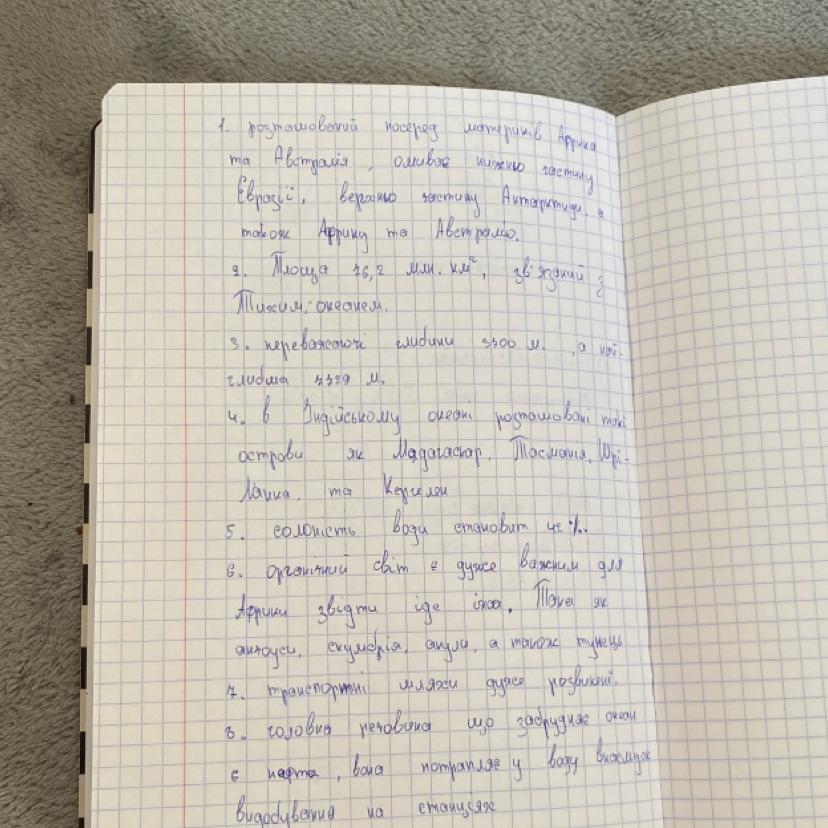 1. розташований посеред материків Африка
та Австралія, омиває нижню частину
Євразії, верхню частину Антарктиди, а
також Африку та Австралію.
2. Площа 76,2 млн. км², зв'язаний з
Тихим, океанем.
3. переважаючі глибини 3700 м. , а най-
глибша 7729 м.
4. в Індійському океані розташовані такі
острови як Мадагаскар, Тасманія, Шрі-
Ланка, та Кергелен
5. солоність води становит 42‰.
6. органічний світ є дуже важним для
Африки звідти іде їжа. Така як
анчоуси, скумбрія, акули, а також тунець
7. транспортні шляхи дуже розвинені.
8. головна речовина що забруднює океан
є нафта, вона потрапляє у воду внаслідок
видобування на станціях